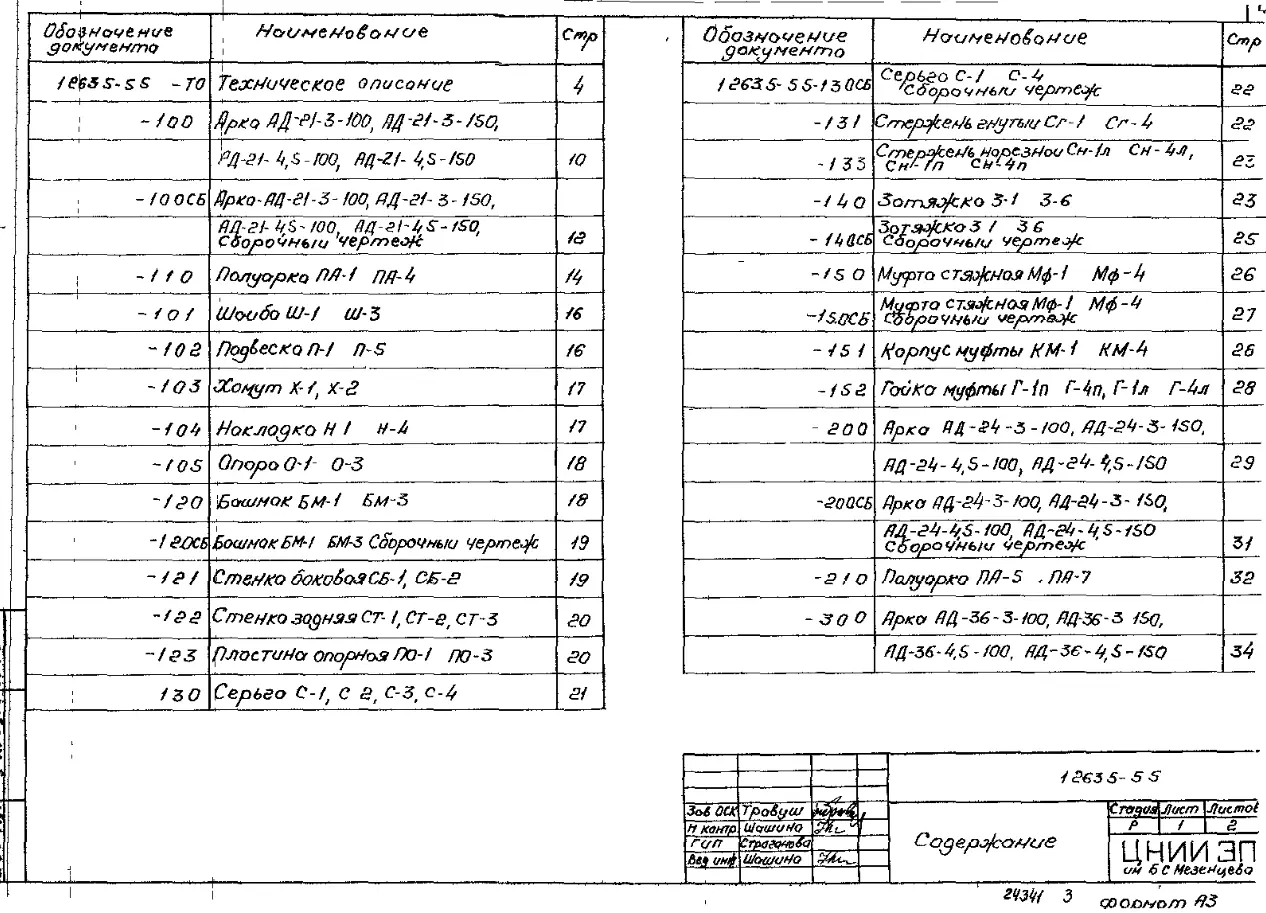 Обозначение документа Наименование Стр
12635-55 -ТО Техническое описание 4
-100 Арка АД-21-3-100, АД-21-3-150,
АД-21-4,5-100, АД-21-4,5-150 10
-100СБ Арка-АД-21-3-100, АД-21-3-150,
АД-21-4,5-100, АД-21-4,5-150,
Сборочный чертеж 12
-110 Полуарка ПА-1 ПА-4 14
-101 Шайба Ш-1 Ш-3 16
-102 Подвеска П-1 П-5 16
-103 Хомут Х-1, Х-2 17
-104 Накладка Н 1 Н-4 17
-105 Опора О-1 О-3 18
-120 Башмак БМ-1 БМ-3 18
-120СБ Башмак БМ-1 БМ-3 Сборочный чертеж 19
-121 Стенка боковая СБ-1, СБ-2 19
-122 Стенка задняя СТ-1, СТ-2, СТ-3 20
-123 Пластина опорная ПО-1 ПО-3 20
130 Серьга С-1, С 2, С-3, С-4 21
Обозначение документа Наименование Стр
12635-55-130СБ Серьга С-1 С-4
Сборочный чертеж 22
-131 Стержень гнутый Сг-1 Сг-4 22
-133 Стержень нарезной Сн-1л Сн-4л,
Сн-1п Сн-4п 23
-140 Затяжка З-1 З-6 23
-140СБ Затяжка З 1 З 6
Сборочный чертеж 25
-150 Муфта стяжная Мф-1 Мф-4 26
-150СБ Муфта стяжная Мф-1 Мф-4
Сборочный чертеж 27
-151 Корпус муфты КМ-1 КМ-4 28
-152 Гайка муфты Г-1п Г-4п, Г-1л Г-4л 28
-200 Арка АД-24-3-100, АД-24-3-150,
АД-24-4,5-100, АД-24-4,5-150 29
-200СБ Арка АД-24-3-100, АД-24-3-150,
АД-24-4,5-100, АД-24-4,5-150
Сборочный чертеж 31
-210 Полуарка ПА-5 . ПА-7 32
-300 Арка АД-36-3-100, АД-36-3 150,
АД-36-4,5-100, АД-36-4,5-150 34
12635-55
Зав ОСК Травуш
Н контр. Шашина
ГИП Страганова
Вед инж Шашина
Содержание
Стадия Лист Листов
Р 1 2
ЦНИИЭП
им Б С Мезенцева
24341 3 формат А3